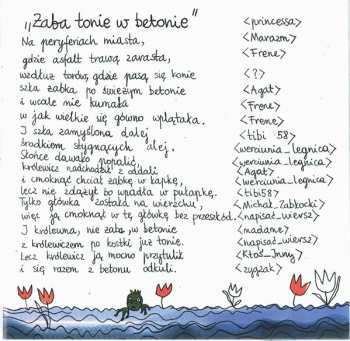 „Żaba tonie w betonie"
Na peryferiach miasta, <princessa>
gdzie asfalt trawą zarasta, <Marazm>
wzdłuż torów, gdzie pasą się konie <Frene>
szła żabka po świeżym betonie <?>
i wcale nie kumała <Agat>
w jak wielkie się gówno wplątała. <Frene>
I szła zamyślona dalej <Frene>
środkiem stygnących alej. <tibi 58>
Słońce dawało popalić, <werciunia_legnica>
królewicz nadchodził z oddali <werciunia_legnica>
i cmoknąć chciał żabkę w łapkę, <Agat>
lecz nie zdążył bo wpadła w pułapkę. <werciunia_legnica>
Tylko główka została na wierzchu, <tibi58>
więc ją cmoknął w tę główkę bez przeszkód. <Michał_Zabłocki>
I królewna, nie żaba, w betonie <napisał_wiersz>
z królewiczem po kostki już tonie. <madame>
Lecz królewicz ją mocno przytulił <napisał_wiersz>
i się razem z betonu odkuli. <Ktoś_Inny>
<zyzzak>